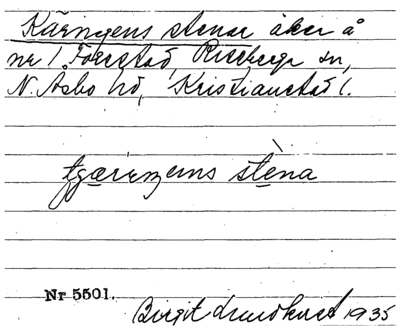 Käringens stenar åker å
nr 1 Forestad, Riseberga sn,
N. Åsbo hd, Kristianstad l.
stèna
Nr 5501.
Birgit Lundkvist 1935